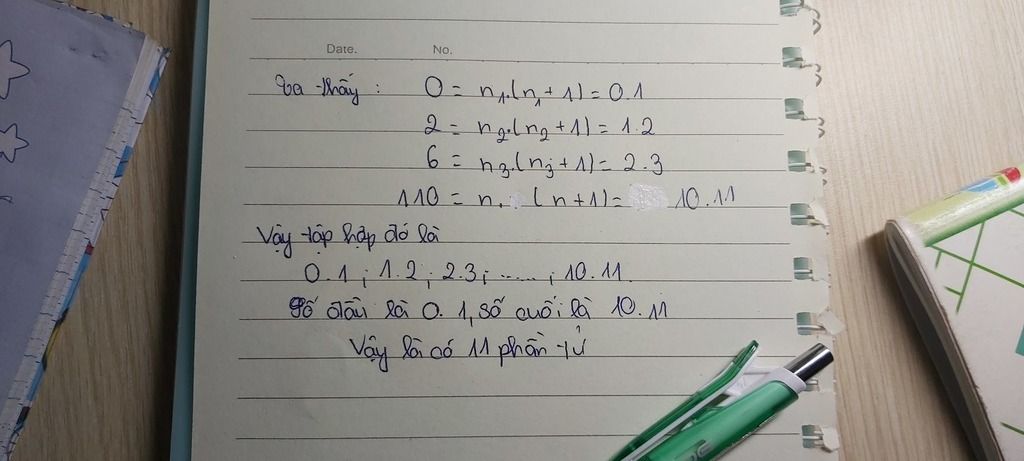 Date. No.
Ta thấy : 0 = n₁.(n₁+1) = 0.1
2 = n₂.(n₂+1) = 1.2
6 = n₃.(n₃+1) = 2.3
110 = n. (n+1) = 10.11
Vậy tập hợp đó là
0.1 ; 1.2 ; 2.3 ; ..... ; 10.11.
Số đầu là 0.1, số cuối là 10.11
Vậy là có 11 phần tử